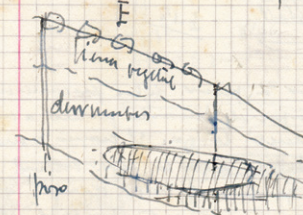 E
tierra vegetal
derrumbes
piso